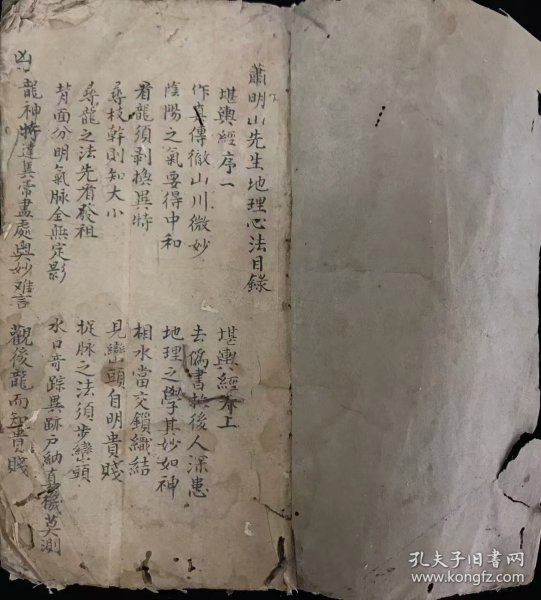 蕭明山先生地理心法目錄
堪輿經序一 堪輿經卷上
作真傳徹山川微妙 去偽書救後人深患
陰陽之氣要得中和 地理之學其妙如神
看龍須剥換異特 相水當交鎖織結
尋枝幹則知大小 見巒頭自明貴賤
尋龍之法先看發祖 捉脉之法須步巒頭
背面分明氣脉全無定影 水口奇踪異跡戶納真機莫測
龍神特達異常盡處奥妙难言 觀後龍而知貴賤
凶
孔夫子旧书网
www.kongfz.com